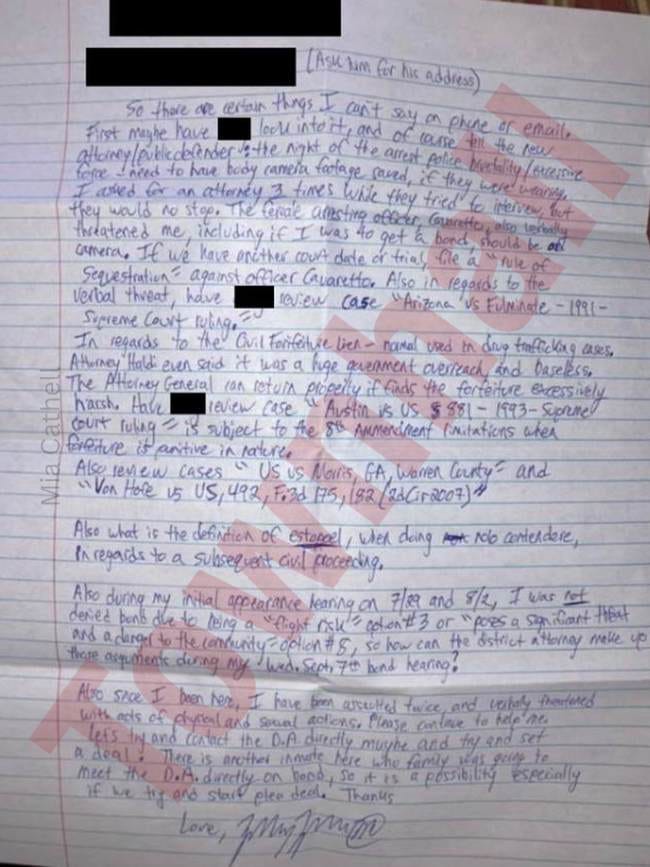 (Ask him for his address)
So there are certain things I can't say on phone or email.
First maybe have look into it, and of course tell the new
attorney/public defender: the night of the arrest police brutality/excessive
force - need to have body camera footage saved, if they were wearing.
I asked for an attorney 3 times while they tried to interview, but
they would no stop. The female arresting officer, Cavaretto, also verbally
threatened me, including if I was to get a bond, should be on
camera. If we have another court date or trial, file a "rule of
Sequestration" against officer Cavaretto. Also in regards to the
verbal threat, have review case "Arizona vs Fulminate - 1991 -
Supreme Court ruling."
In regards to the Civil Forfeiture Lien - normal used in drug trafficking cases.
Attorney Haldi even said it was a huge government overreach and baseless.
The Attorney General can return property if finds the forfeiture excessively
harsh. Have review case "Austin vs US § 881 - 1993 - Supreme
Court ruling" is subject to the 8th Ammendment limitations when
forfeiture is punitive in nature.
Also review cases "US vs Norris, GA, Warren County" and
"Von Hofe vs US, 492, F.3d 175, 182 (2d Cir 2007)"
Also what is the definition of estoppel, when doing nolo contendere,
in regards to a subsequent civil proceeding.
Also during my initial appearance hearing on 7/29 and 8/2, I was not
denied bond due to being a "flight risk" option #3 or "poses a significant threat
and a danger to the community" option #5, so how can the district attorney make up
those arguments during my Wed. Sept, 7th bond hearing?
Also since I been here, I have been assaulted twice, and verbally threatened
with acts of physical and sexual actions. Please continue to help me.
Let's try and contact the D.A. directly maybe and try and set
a deal! There is another inmate here who family was going to
meet the D.A. directly on bond, so it is a possibility especially
if we try and start plea deal. Thanks
Love,
Mia Cathell
Townhall